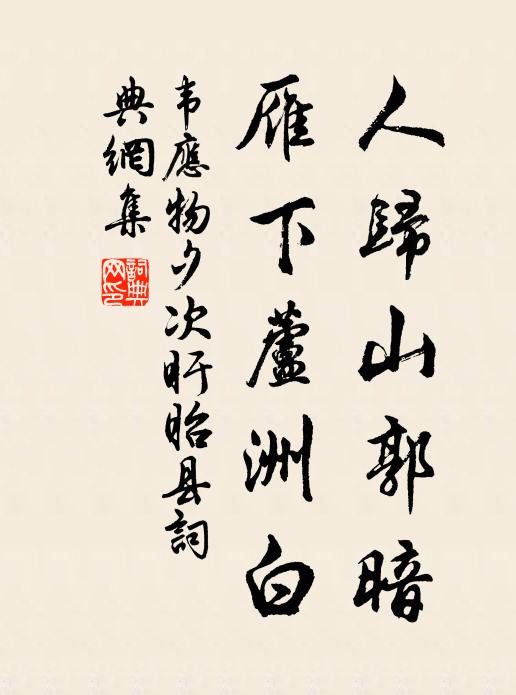 人歸山郭暗
雁下蘆洲白
韦應物夕次盱眙县詞
典網集
詞典
网印